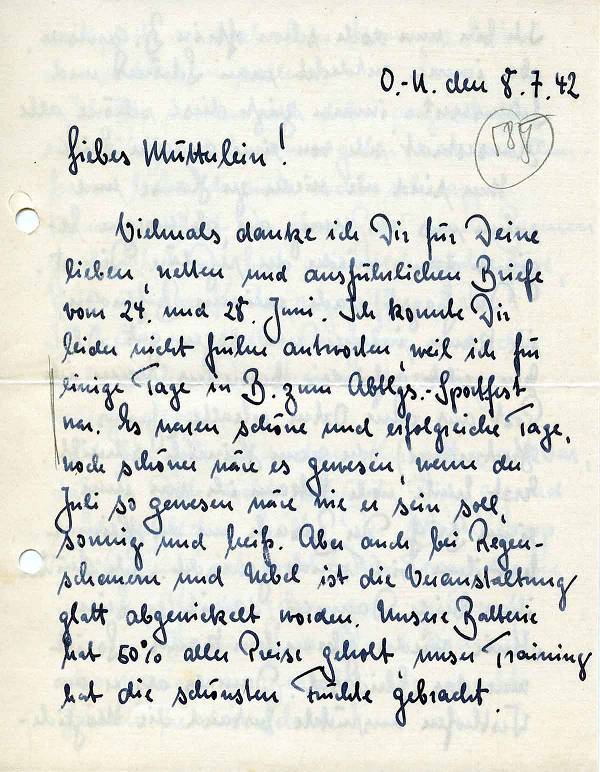 O.-U. den 8.7.42
Liebes Mütterlein!
Vielmals danke ich Dir für Deine
lieben, netten und ausführlichen Briefe
vom 24. und 28. Juni. Ich konnte Dir
leider nicht früher antworten, weil ich für
einige Tage in B. zum Abtlgs.-Sportfest
war. Es waren schöne und erfolgreiche Tage,
noch schöner wäre es gewesen, wenn der
Juli so gewesen wäre wie er sein soll,
sonnig und heiß. Aber auch bei Regen-
schauern und Nebel ist die Veranstaltung
glatt abgewickelt worden. Unsere Batterie
hat 50% aller Preise geholt, unser Training
hat die schönsten Früchte gebracht.